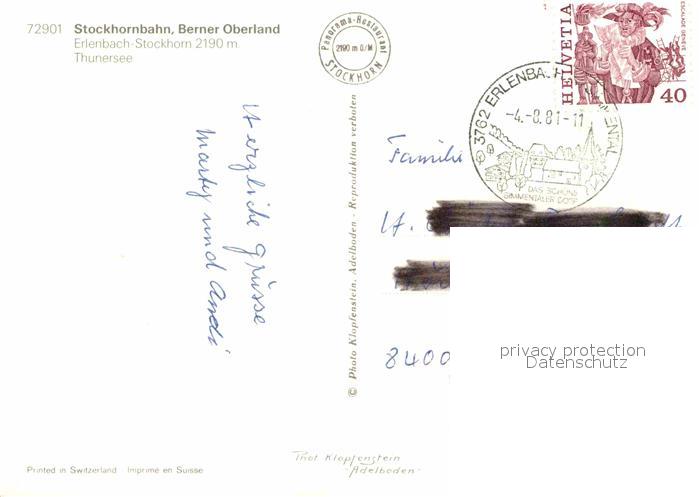 72901 Stockhornbahn, Berner Oberland
Erlenbach-Stockhorn 2190 m
Thunersee
Panorama-Restaurant
2190 m ü/M
STOCKHORN
HELVETIA
ESCALADE GENÈVE
40
3762 ERLENBACH
-4.-8.81-11
DAS SCHÖNE
SIMMENTALER DORF
Herzliche Grüsse
Marty und Andi
© Photo Klopfenstein, Adelboden - Reproduktion verboten
Familie
H.
8400
privacy protection
Datenschutz
Phot Klopfenstein
-Adelboden-
Printed in Switzerland · Imprimé en Suisse